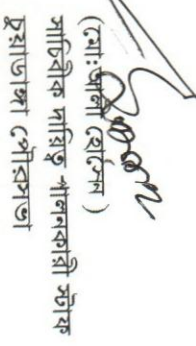 (মো: আলী হোসেন)
সার্বিক দায়িত্ব পালনকারী স্টাফ
চুয়াডাঙ্গা পৌরসভা